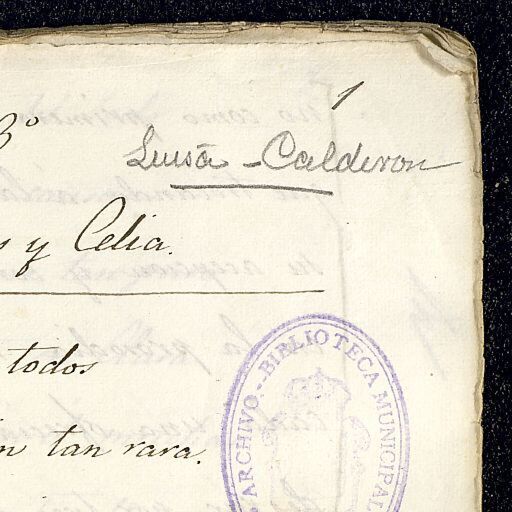 1
3º
Luisa Calderon
s y Celia.
todos
n tan rara.
ARCHIVO.-BIBLIOTECA MUNICIPAL